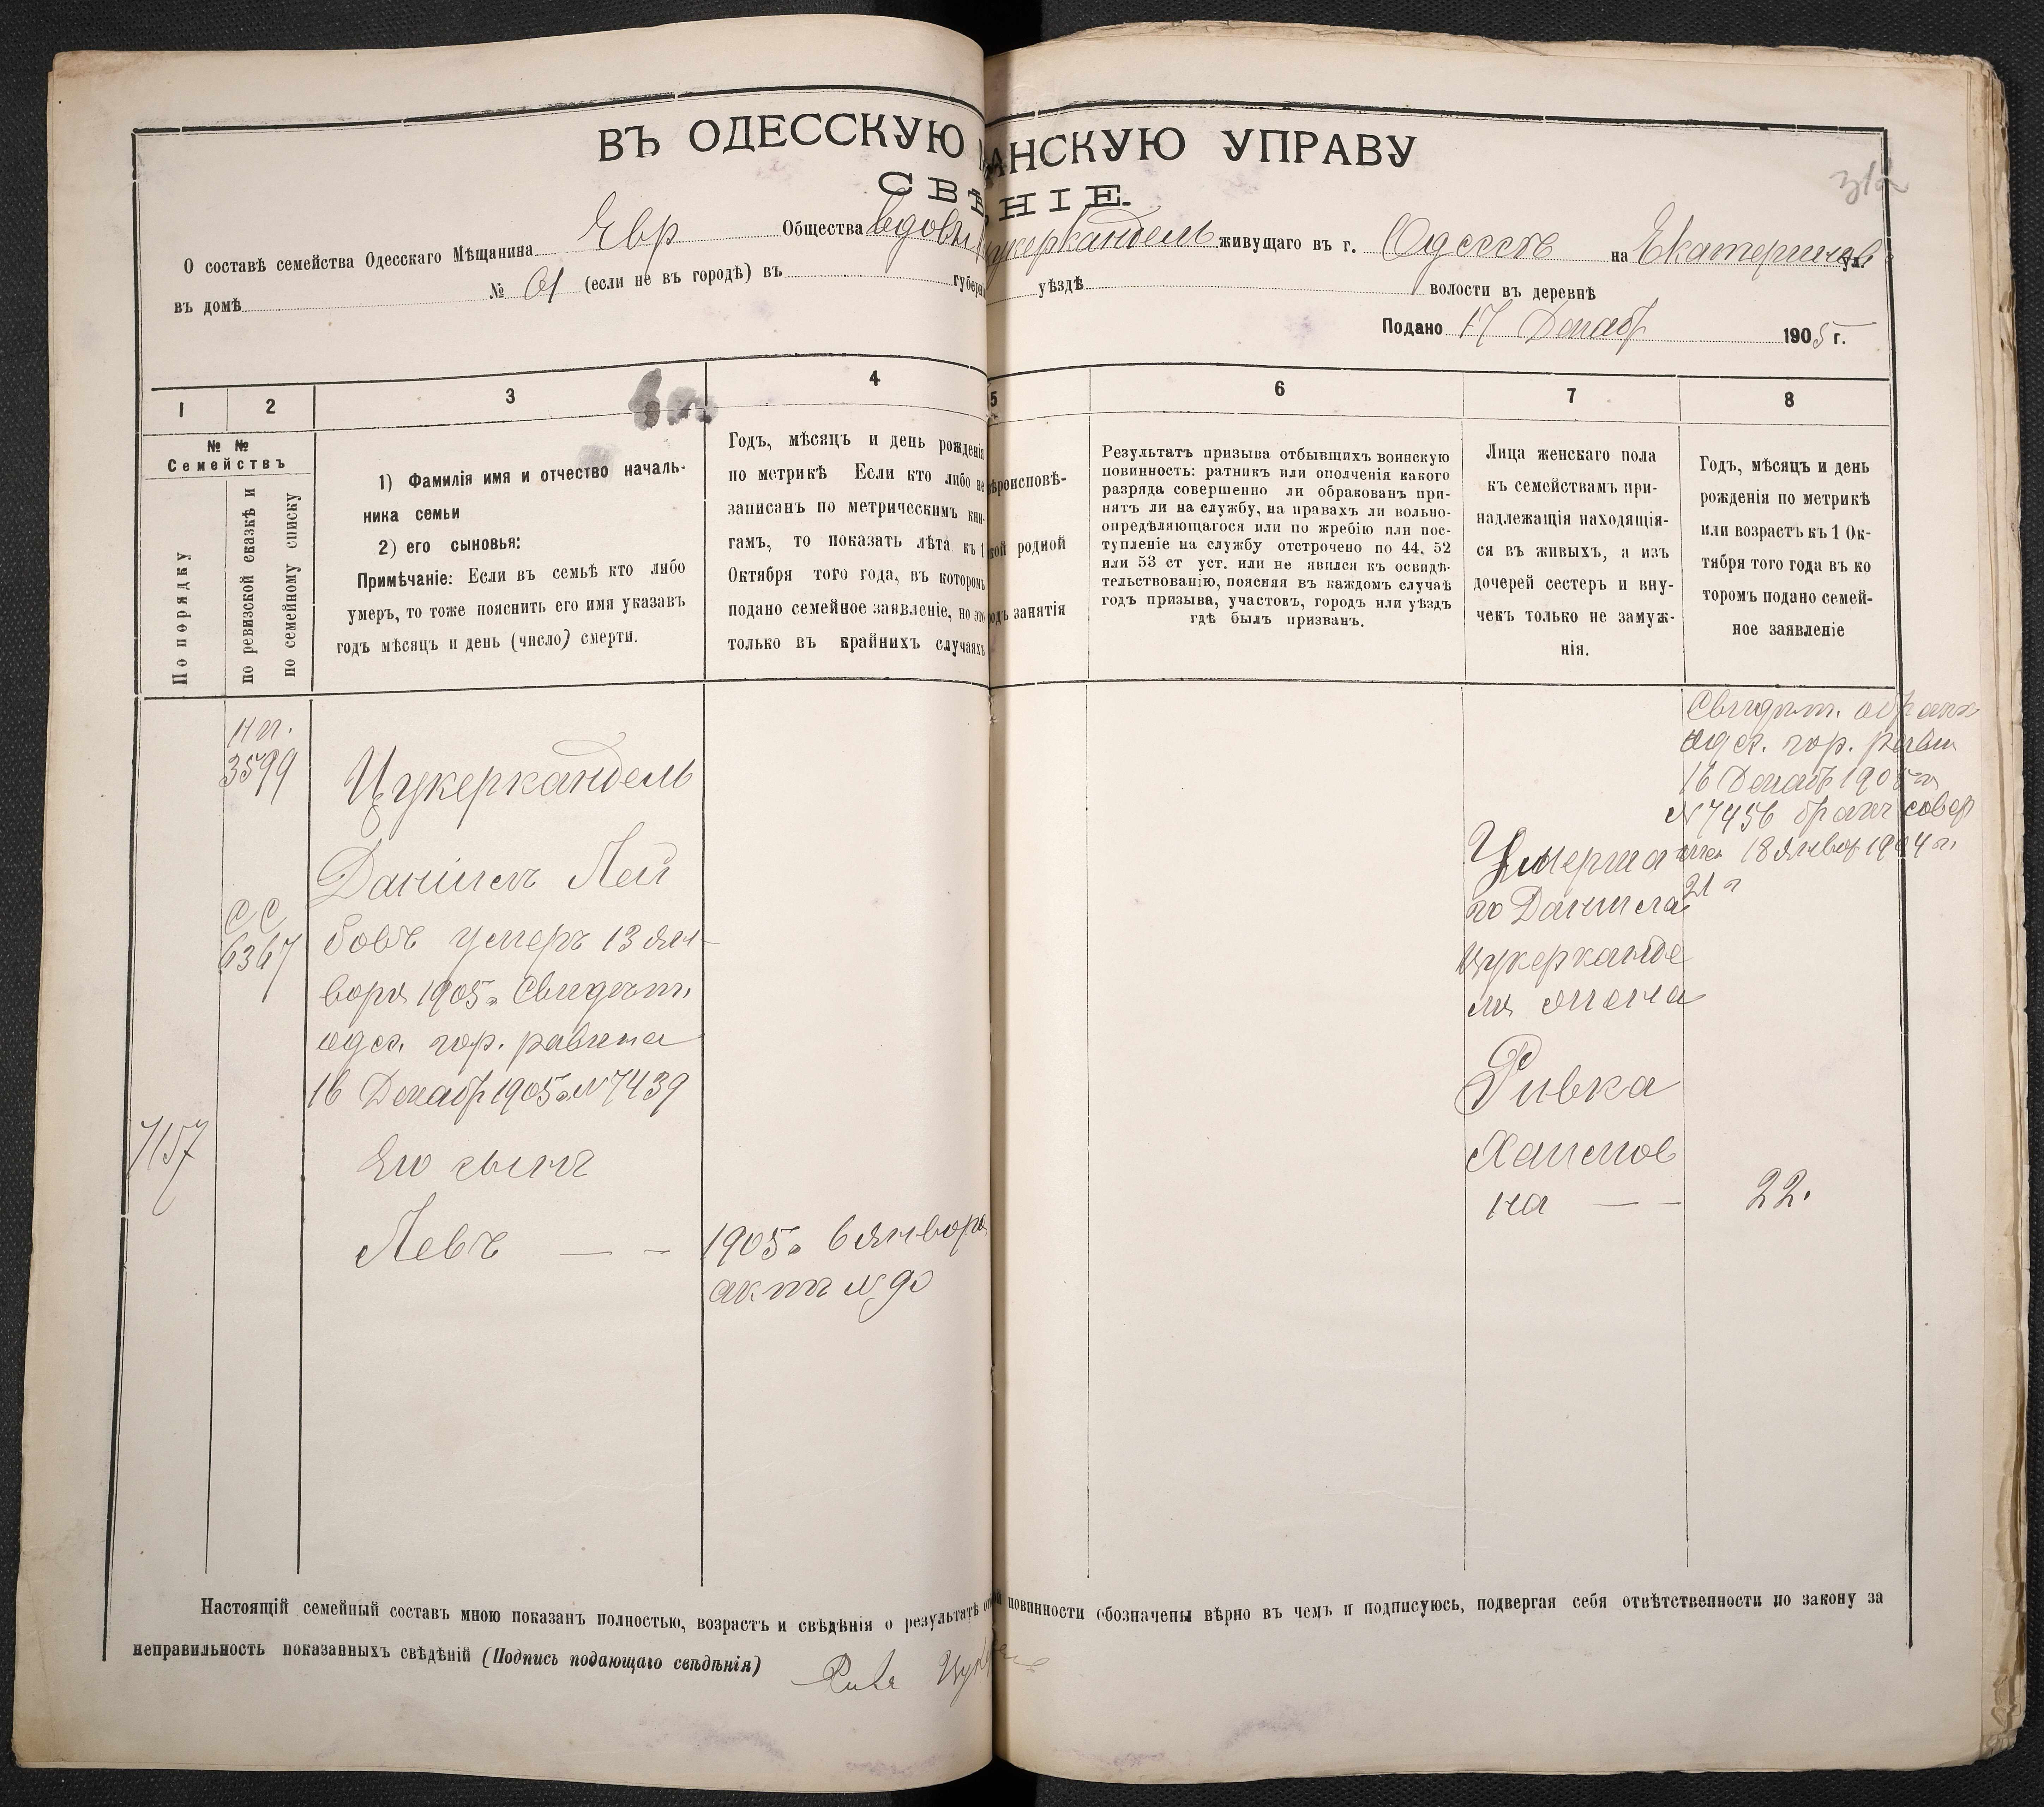 ВЪ ОДЕССКУЮ АНСКУЮ УПРАВУ
СВѢ НІЕ.
312
О составѣ семейства Одесскаго Мѣщанина Евр Общества вдовы Цукеркандель живущаго въ г. Одессѣ на Екатеринов ул.
въ домѣ № 61 (если не въ городѣ) въ губерн уѣздѣ волости въ деревнѣ
Подано 17 Декабр 1905 г.
1 2 3 4 5 6 7 8
№ №
Семействъ
По порядку
по ревизской сказкѣ и
по семейному списку
1) Фамилія имя и отчество началь-
ника семьи
2) его сыновья:
Примѣчаніе: Если въ семьѣ кто либо
умеръ, то тоже пояснить его имя указавъ
годъ мѣсяцъ и день (число) смерти.
Годъ, мѣсяцъ и день рожденія
по метрикѣ Если кто либо не
записанъ по метрическимъ кни-
гамъ, то показать лѣта къ 1
Октября того года, въ которомъ
подано семейное заявленіе, но это
только въ крайнихъ случаяхъ
ѣроисповѣ-
кой родной
одъ занятія
Результатъ призыва отбывшихъ воинскую
повинность: ратникъ или ополченія какого
разряда совершенно ли обракованъ при-
нятъ ли на службу, на правахъ ли вольно-
опредѣляющагося или по жребію или пос-
тупленіе на службу отстрочено по 44, 52
или 53 ст уст. или не явился къ освидѣ-
тельствованію, поясняя въ каждомъ случаѣ
годъ призыва, участокъ, городъ или уѣздъ
гдѣ былъ призванъ.
Лица женскаго пола
къ семействамъ при-
надлежащія находящія-
ся въ живыхъ, а изъ
дочерей сестеръ и вну-
чекъ только не замуж-
нія.
Годъ, мѣсяцъ и день
рожденія по метрикѣ
или возрастъ къ 1 Ок-
тября того года въ ко
торомъ подано семей-
ное заявленіе
3599
Цукеркандель
Даніилъ Лей
СС
6367
бовъ умеръ 13 ян-
варя 1905 г. Свидѣт.
одес. гор. равина
16 Декабр 1905 г. № 7439
7157
Его сынъ
Левъ — –
1905 г. 6 января
актъ № 90
Свидѣт. о бракѣ
одес. гор. равин
16 Декабр 1905 г.
№ 7456 бракъ совер
18 январ 1904 г.
Умерша
го Данила
Цукеркандe
ля жена
Ривка
Хаимов
на — –
22.
Настоящій семейный составъ мною показанъ полностью, возрастъ и свѣдѣнія о результатѣ повинности обозначены вѣрно въ чемъ и подписуюсь, подвергая себя отвѣтственности по закону за
неправильность показанныхъ свѣдѣній (Подпись подающаго свѣдѣнія)